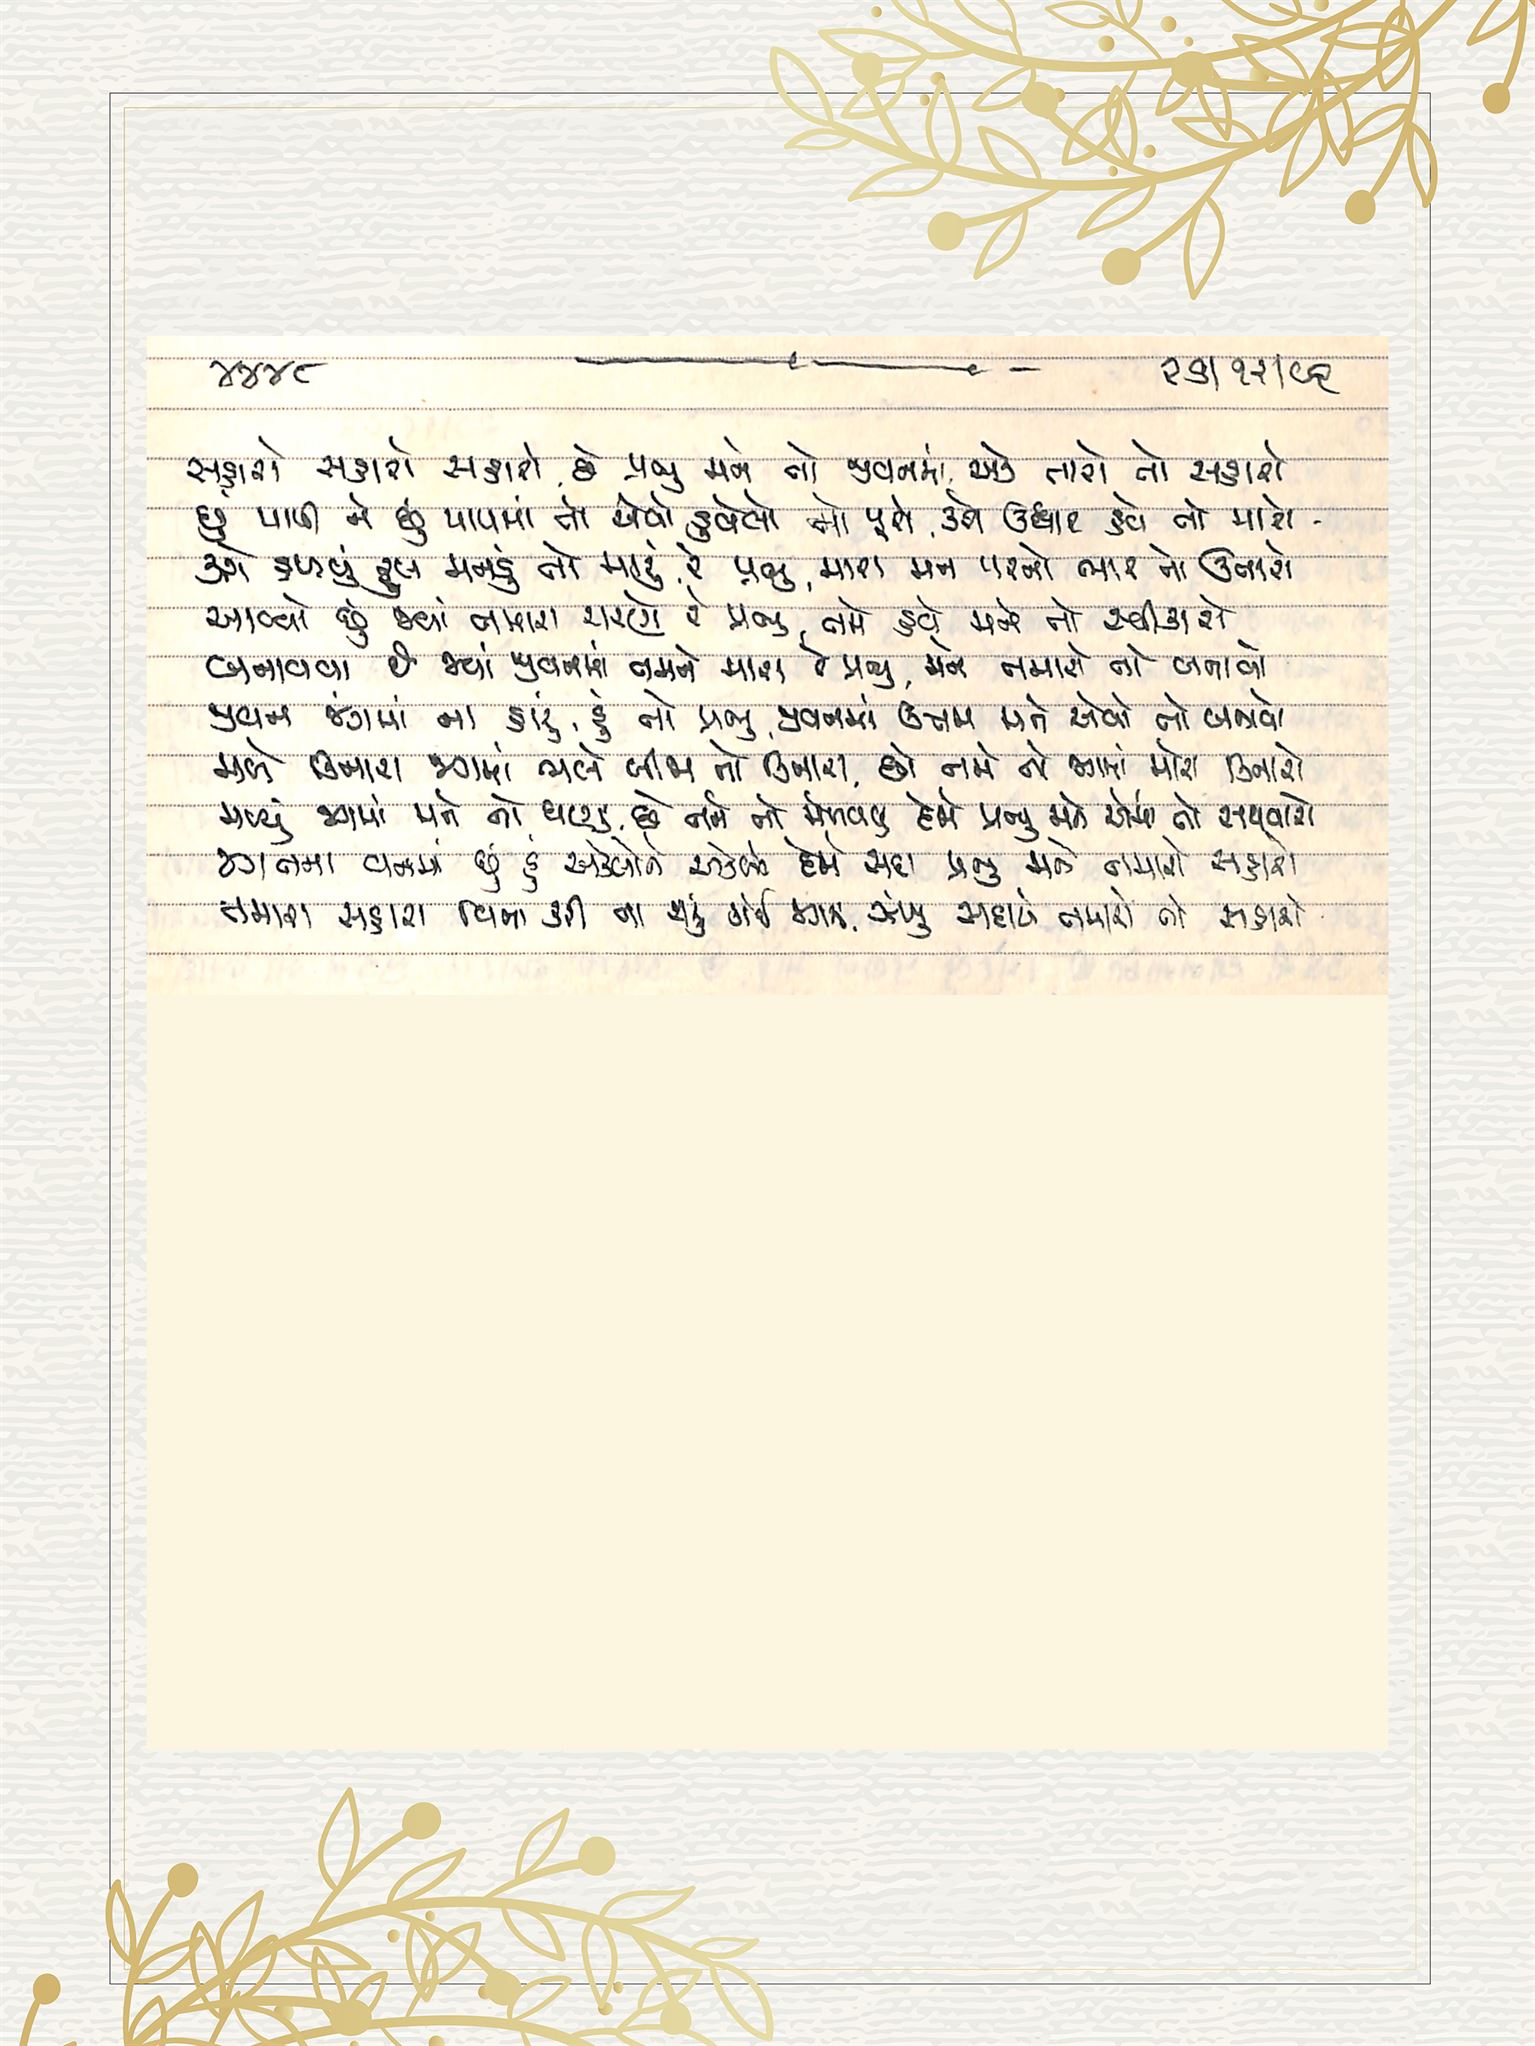 ૪૪૪૮ ૨૭/૧૨/૯૨
સહારો સહારો સહારો, છે પ્રભુ મને તો જીવનમાં, એક તારો તો સહારો
છું પાપી ને છું પાપમાં તો એવો ડુબેલો તો પૂરો, કરો ઉધ્ધાર હવે તો મારો
કરો હળવું ફૂલ મનડું તો મારું, રે પ્રભુ, મારા મન પરનો ભાર તો ઉતારો
આવ્યો છું જ્યાં તમારા શરણે રે પ્રભુ, તમે હવે મને તો સ્વીકારો
બનાવવા છે જ્યાં જીવનમાં તમને મારા રે પ્રભુ, મને તમારો તો બનાવો
જીવન જંગમાં ના હારું, હું તો પ્રભુ, જીવનમાં ઉત્તમ મને એવો તો બનાવો
મળે ઉતારા જગમાં ભલે બીજા તો ઉતારા, છો તમે ને જગમાં મારો ઉતારો
મળ્યું જગમાં મને તો ઘણું, છે તમે તો મેળવવું હૈયે પ્રભુ મને એમાં તો સથવારો
જગતના વનમાં છું હું એકલોને એકલો હૈયે સદા પ્રભુ મને તમારો સહારો
તમારા સહારા વિના કરી ના શકું કાંઈ જગમાં, ઝંખુ સદાયે તમારો તો સહારો